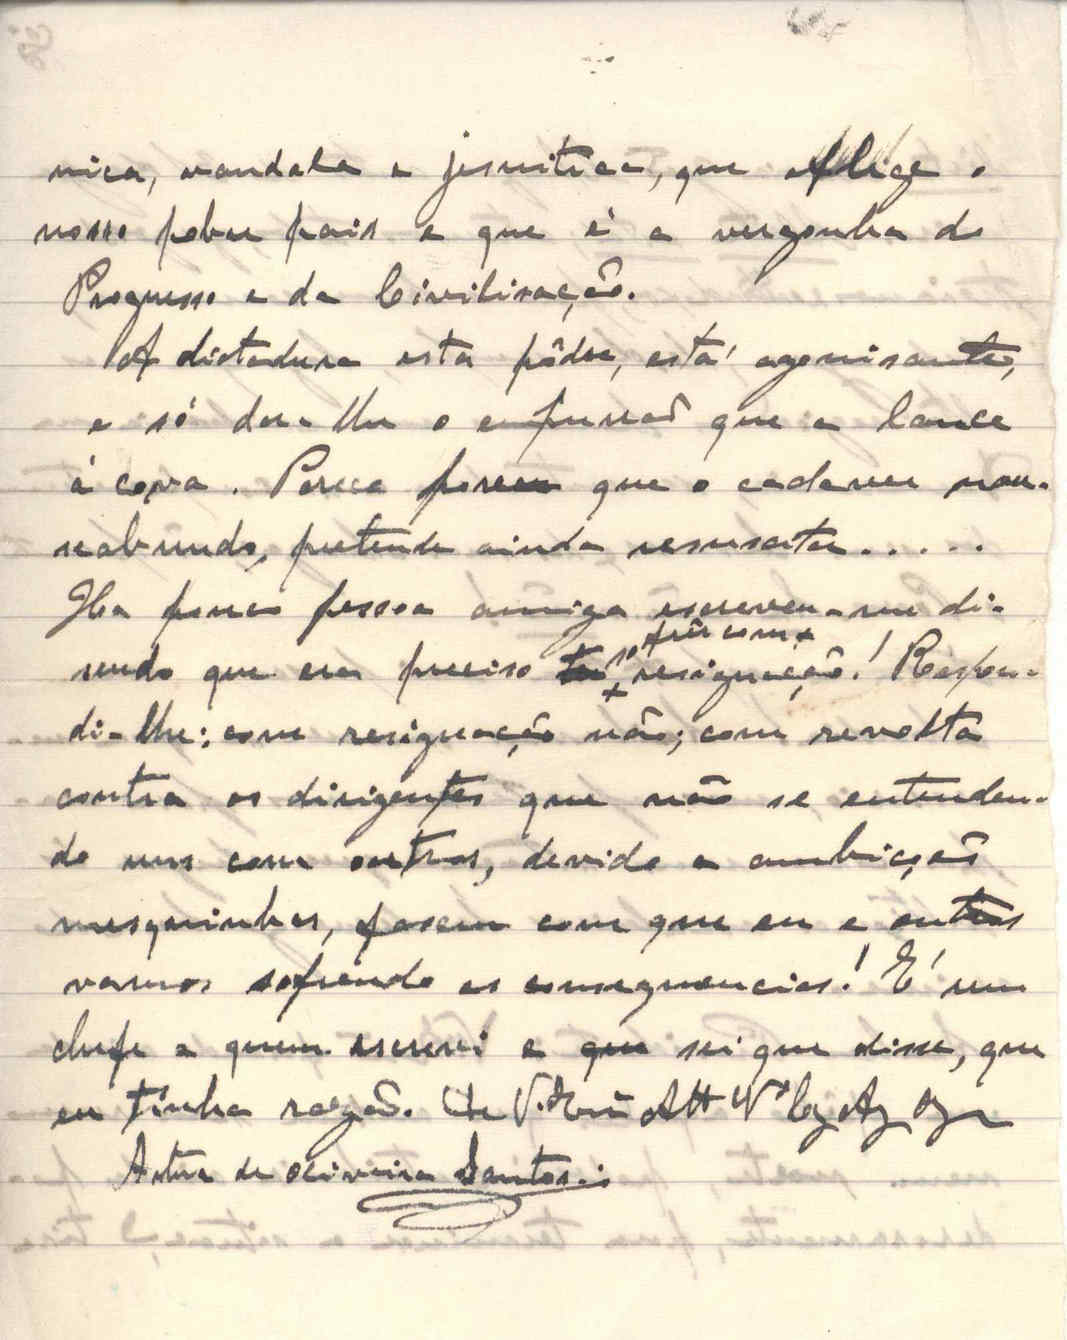 nica, vandala e jesuitica, que aflige o
nosso pobre pais e que é a vergonha do
Progresso e da Civilisação.
A dictadura esta pôdre, está agonisante,
e só dar-lhe o empurrão que a lance
á cova. Parece porem que o cadaver nau-
seabundo, pretende ainda resuscitar.....
Ha pouco pessoa amiga escreveu-me di-
sendo que era preciso sofrer com resignação! Respon-
di-lhe: com resignação não; com revolta
contra os dirigentes que não se entenden-
do uns com outros, devido a ambições
mesquinhas, fasem com que eu e outros
vamos sofrendo as consequencias! E' um
chefe a quem escrevi e que sei que disse, que
eu tinha razão. De V. Exª Att Vº
Artur de Oliveira Santos